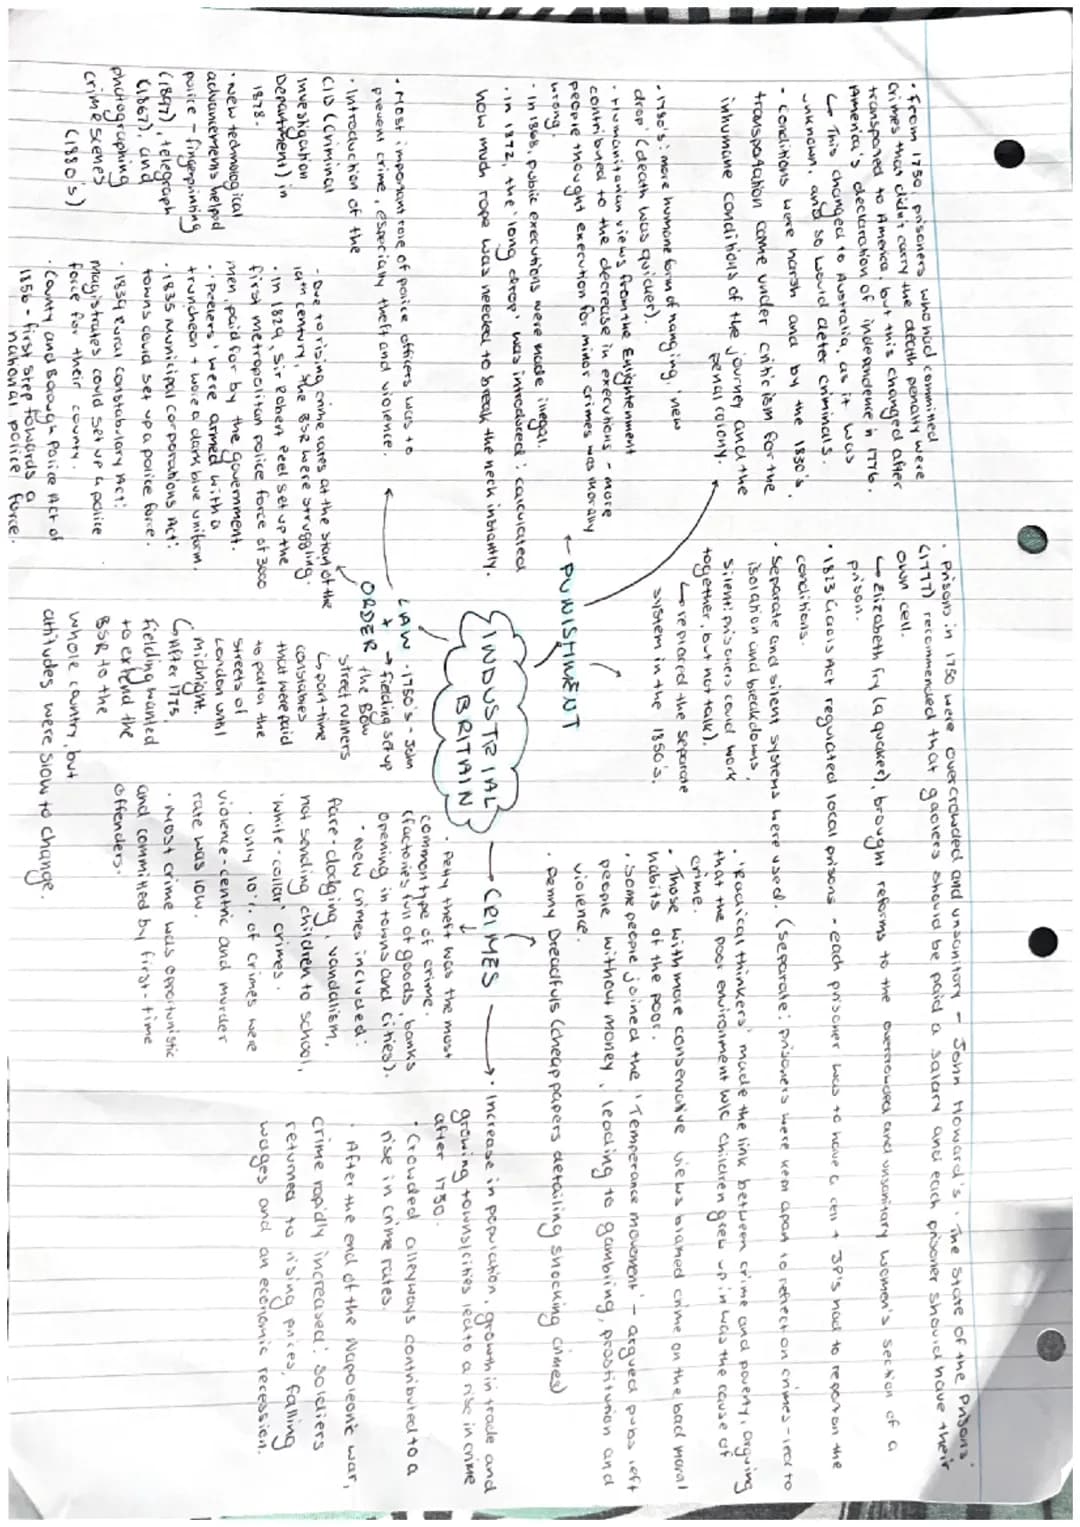 • From 1750, prisoners who had committed
crimes that didn't carry the death penalty were
transported to America, but this changed after
America's declaration of independence in 1776.
↳ This changed to Australia, as it was
unknown, and so would deter criminals.
• Conditions were harsh and by the 1830's,
transportation came under criticism for the
inhumane conditions of the journey and the
penal colony.
• Prisons in 1750 were overcrowded and unsanitary - John Howard's 'The State of the Prisons'
(1777) recommended that gaolers should be paid a salary and each prisoner should have their
own cell.
↳ Elizabeth Fry (a quaker), brought reforms to the overcrowded and unsanitary women's section of a
prison.
• 1823 Gaols Act regulated local prisons - each prisoner was to have a cell + JP's had to report on the
conditions.
• Separate and silent systems were used. (separate: prisoners were kept apart to reflect on crimes - led to
isolation and breakdowns,
silent: prisoners could work
together, but not talk).
↳ replaced the separate
system in the 1850's.
• 1780's: more humane form of hanging, 'new
drop' (death was quicker).
• Humanitarian views from the Enlightenment
contributed to the decrease in executions - more
people thought execution for minor crimes was morally
wrong.
• In 1868, public executions were made illegal.
• In 1872, the 'long drop' was introduced: calculated
how much rope was needed to break the neck instantly.
PUNISHMENT
INDUSTRIAL
BRITAIN
CRIMES
• 'Radical thinkers' made the link between crime and poverty, arguing
that the poor environment w/c children grew up in was the cause of
crime.
• Those with more conservative views blamed crime on the bad moral
habits of the poor.
• Some people joined the 'Temperance movement' - argued pubs left
people without money, leading to gambling, prostitution and
violence.
• Penny Dreadfuls (cheap papers detailing shocking crimes)
• Increase in population, growth in trade and
growing towns/cities led to a rise in crime
after 1750.
• Crowded alleyways contributed to a
rise in crime rates.
• After the end of the Napoleonic war,
crime rapidly increased: soldiers
returned to rising prices, falling
wages and an economic recession.
• Petty theft was the most
common type of crime.
(factories full of goods, banks
opening in towns and cities).
• New crimes included:
fare-dodging, vandalism,
not sending children to school,
'white-collar' crimes.
• Only 10% of crimes were
violence-centric and murder
rate was low.
• Most crime was opportunistic
and committed by first-time
offenders.
LAW
+
ORDER
• 1750's - John
→ Fielding set up
the Bow
street runners
↳ part-time
constables
that were paid
to patrol the
streets of
London until
midnight.
↳ After 1775,
Fielding wanted
to extend the
BSR to the
whole country, but
attitudes were slow to change.
• Most important role of police officers was to
prevent crime, especially theft and violence.
• Introduction of the
CID (Criminal
Investigation
Department) in
1878.
• New technological
advancements helped
police - fingerprinting
(1897), telegraph
(1867), and
photographing
crime scenes
(1880's)
• Due to rising crime rates at the start of the
19th century, the BSR were struggling.
• In 1829, Sir Robert Peel set up the
first metropolitan police force of 3000
men, paid for by the government.
• 'Peelers' were armed with a
truncheon + wore a dark blue uniform.
• 1835 Municipal Corporations Act:
towns could set up a police force.
• 1839 Rural Constabulary Act:
magistrates could set up a police
force for their county.
• County and Borough Police Act of
1856 - first step towards a
national police force.